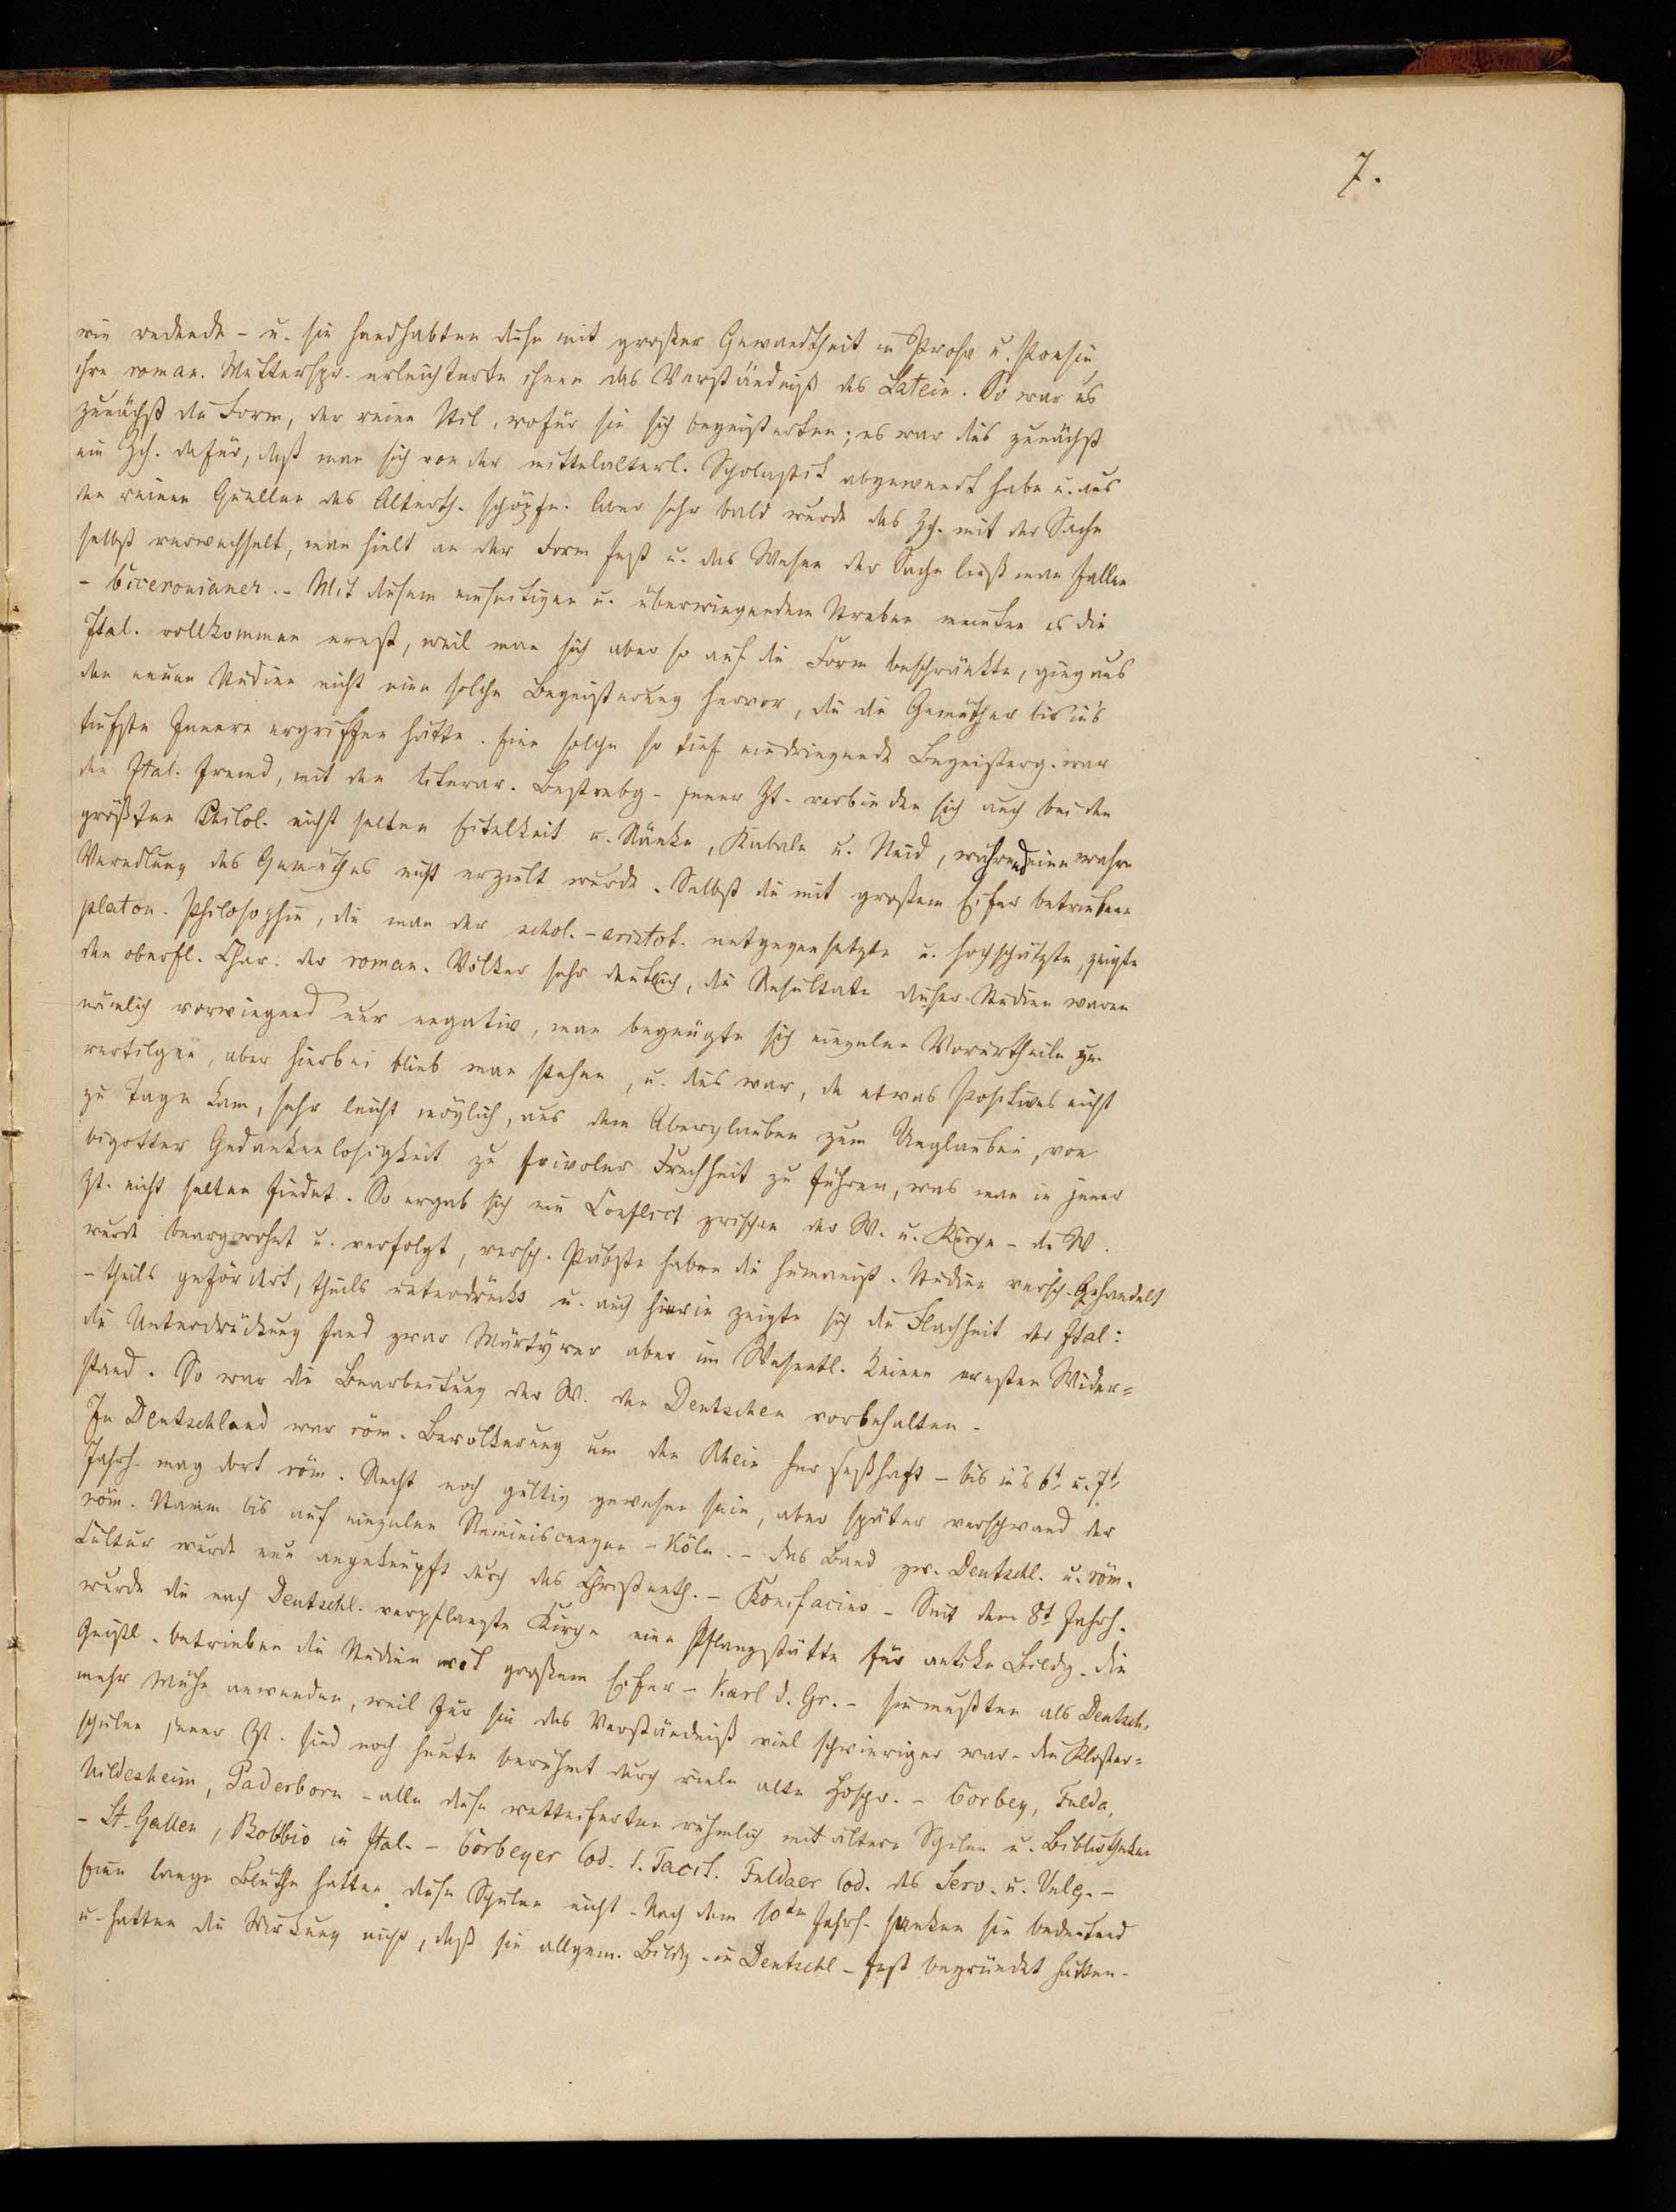 7.
wie redende - u. sie handhabten diese mit großer Gewandtheit in Prosa u. Poesie
ihre roman. Muttersp. erleichterte ihnen das Verständniß des Latein. So war es
zunächst die Form, der reine Stil, wofür sie sich begeisterten; es war dies zunächst
ein Zch. dafür, daß man sich von der mittelalterl. Scholastik abgewandt habe u. aus
den reinen Quellen des Alterth. schöpfe. Aber sehr bald wurde das Zch. mit der Sache
selbst verwechselt, man hielt an der Form fest u. das Wesen der Sache ließ man fallen
- Ciceronianer. - Mit diesem einseitigen u. überwiegendem Streben meinten es die
Ital. vollkommen ernst, weil man sich aber so auf die Form beschränkte, ging aus
den neuen Studien nicht eine solche Begeisterung hervor, die die Gemüther bis in's
tiefste Innere ergriffen hätte. Eine solche so tief eindringende Begeisterg. war
den Ital. fremd, mit den literar. Bestrebg. jener Zt. verbinden sich auch bei den
größten Philol. nicht selten Eitelkeit u. Ränke, Kabale u. Neid, während eine wahre
Veredlung des Gemüthes nicht erzielt wurde. Selbst die mit großem Eifer betriebene
platon. Philosophie, die man der schol.-aristot. entgegensetzte u. hochschätzte, zeigte
den oberfl. Char. der roman. Völker sehr deutlich, die Resultate dieser Studien waren
nämlich vorwiegend nur negativ, man begnügte sich einzelne Vorurtheile zu
vertilgen, aber hierbei blieb man stehen, u. dies war, da etwas Positives nicht
zu Tage kam, sehr leicht möglich, aus dem Aberglauben zum Unglauben, von
bigotter Gedankenlosigkeit zu frivoler Frechheit zu führen, was man in jener
Zt. nicht selten findet. So ergab sich ein Conflict zwischen der W. u. Kirche - die W.
wurde beargwohnt u. verfolgt, versch. Päbste haben die humanist. Studien versch. behandelt
- theils gefördert, theils unterdrückt u. auch hierin zeigte sich die Flachheit der Ital:
die Unterdrückung fand zwar Märtyrer aber im Wesentl. keinen ernsten Wider=
stand. So war die Bearbeitung der W. den Deutschen vorbehalten.
In Deutschland war röm. Bevölkerung um den Rhein her seßhaft - bis in's 6t. u. 7t.
Jahrh. mag dort röm. Recht noch gültig gewesen sein, aber später verschwand der
röm. Stamm bis auf einzelne Reminiscenzen - Köln. - Das Band zw. Deutschl. u. röm.
Cultur wurde neu angeknüpft durch das Christenth. - Bonifacius - Seit dem 8t Jahrh.
wurde die nach Deutschl. verpflanzte Kirche eine Pflanzstätte für antike Bildg. Die
Geistl. betrieben die Studien mit großem Eifer - Karl d. Gr. - sie mußten als Deutsch.
mehr Mühe anwenden, weil für sie das Verständniß viel schwieriger war. Die Kloster=
schulen jener Zt. sind noch heute berühmt durch viele alte Hdschr. - Corbey, Fulda,
Hildesheim, Paderborn - alle diese wetteiferten rühmlich mit ältern Schulen u. Bibliotheken
- St. Gallen, Bobbio in Ital. - Corbeyer Cod. 1. Tacit. Fuldaer Cod. des Serv. u. Vulg. -
Eine lange Blüthe hatten diese Schulen nicht. Nach dem 10ten Jahrh. sanken sie bedeutend
u. hatten die Wirkung nicht, daß sie allgem. Bildg. in Deutschl. fest begründet hätten.